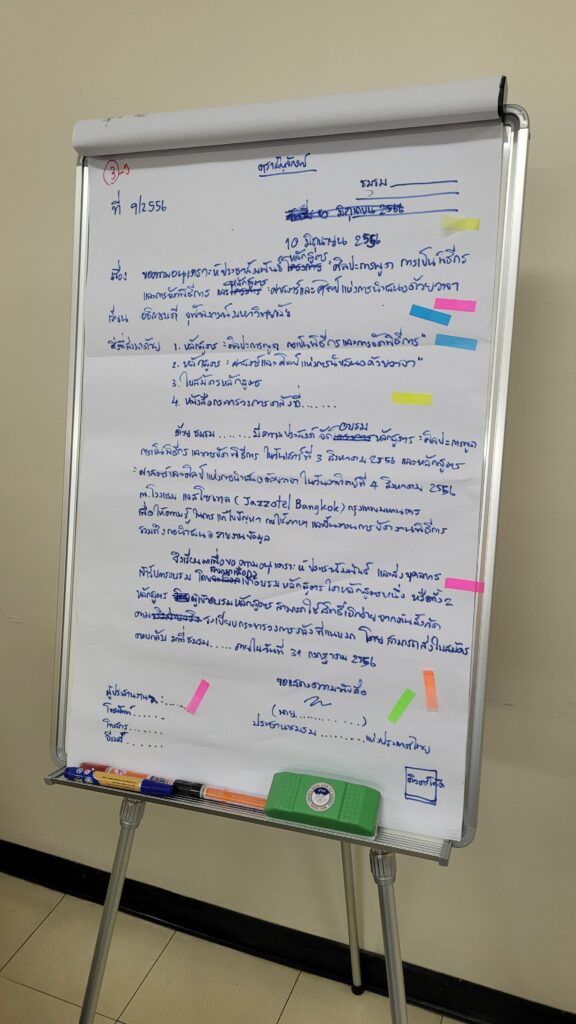 3-1
ตราสัญลักษณ์
ชมรม
ที่ 9/2556
10 มิถุนายน 2556
เรื่อง ขอความอนุเคราะห์ประชาสัมพันธ์ หลักสูตร "ศิลปะการพูด การเป็นพิธีกร
และการจัดพิธีการ และ หลักสูตร : ศาสตร์และศิลป์แห่งการนำเสนอด้วยวาจา
เรียน อธิการบดี จุฬาลงกรณ์มหาวิทยาลัย
สิ่งที่ส่งมาด้วย 1. หลักสูตร : ศิลปะการพูด การเป็นพิธีกรและการจัดพิธีการ"
2. หลักสูตร : ศาสตร์และศิลป์แห่งการนำเสนอด้วยวาจา"
3. ใบสมัครหลักสูตร
4. หนังสือกระทรวงการคลังที่......
ด้วย ชมรม ....... มีความประสงค์ จัดอบรม หลักสูตร : ศิลปะการพูด
การเป็นพิธีกร และการจัดพิธีการ ในวันเสาร์ที่ 3 สิงหาคม 2556 และหลักสูตร
: ศาสตร์และศิลป์แห่งการนำเสนอด้วยวาจา ในวันอาทิตย์ที่ 4 สิงหาคม 2556
ณ โรงแรม แจสโซเทล (Jazzotel Bangkok) กรุงเทพมหานคร
เพื่อให้ความรู้ ในการแก้ไขปัญหา การใช้ภาษา และขั้นตอนการจัดงานพิธีการ
รวมถึงการนำเสนอ รายงานข้อมูล
จึงเรียนมาเพื่อขอความอนุเคราะห์ ประชาสัมพันธ์ และส่งบุคลากร
เข้ารับการอบรม โดย เข้าอบรม หลักสูตรใดหลักสูตรหนึ่ง หรือทั้ง 2
หลักสูตร ผู้เข้าอบรมหลักสูตร สามารถใช้สิทธิ์เบิกจ่ายจากต้นสังกัด
ตาม ระเบียบกระทรวงการคลัง ที่แนบมา โดยสามารถส่งใบสมัคร
ตอบกลับมาที่ชมรม...... ภายในวันที่ 31 กรกฎาคม 2556
ขอแสดงความนับถือ
(นาย..........)
ประธานชมรม ........ แห่งประเทศไทย
ผู้ประสานงาน : ......
โทรศัพท์......
โทรสาร......
อีเมล์......